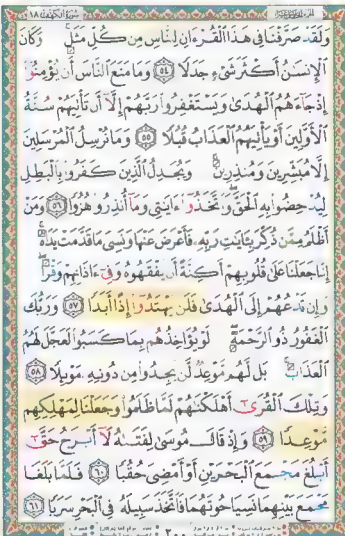 سورة الكهف ١٨
وَلَقَدْ صَرَّفْنَا فِى هَٰذَا ٱلْقُرْءَانِ لِلنَّاسِ مِن كُلِّ مَثَلٍ وَكَانَ
ٱلْإِنسَٰنُ أَكْثَرَ شَىْءٍ جَدَلًا ٥٤ وَمَا مَنَعَ ٱلنَّاسَ أَن يُؤْمِنُوٓا۟
إِذْ جَآءَهُمُ ٱلْهُدَىٰ وَيَسْتَغْفِرُوا۟ رَبَّهُمْ إِلَّآ أَن تَأْتِيَهُمْ سُنَّةُ
ٱلْأَوَّلِينَ أَوْ يَأْتِيَهُمُ ٱلْعَذَابُ قُبُلًا ٥٥ وَمَا نُرْسِلُ ٱلْمُرْسَلِينَ
إِلَّا مُبَشِّرِينَ وَمُنذِرِينَ وَيُجَٰدِلُ ٱلَّذِينَ كَفَرُوا۟ بِٱلْبَٰطِلِ
لِيُدْحِضُوا۟ بِهِ ٱلْحَقَّ وَٱتَّخَذُوٓا۟ ءَايَٰتِى وَمَآ أُنذِرُوا۟ هُزُوًا ٥٦ وَمَنْ
أَظْلَمُ مِمَّن ذُكِّرَ بِـَٔايَٰتِ رَبِّهِۦ فَأَعْرَضَ عَنْهَا وَنَسِىَ مَا قَدَّمَتْ يَدَاهُ
إِنَّا جَعَلْنَا عَلَىٰ قُلُوبِهِمْ أَكِنَّةً أَن يَفْقَهُوهُ وَفِىٓ ءَاذَانِهِمْ وَقْرًا
وَإِن تَدْعُهُمْ إِلَى ٱلْهُدَىٰ فَلَن يَهْتَدُوٓا۟ إِذًا أَبَدًا ٥٧ وَرَبُّكَ
ٱلْغَفُورُ ذُو ٱلرَّحْمَةِ لَوْ يُؤَاخِذُهُم بِمَا كَسَبُوا۟ لَعَجَّلَ لَهُمُ
ٱلْعَذَابَ بَل لَّهُم مَّوْعِدٌ لَّن يَجِدُوا۟ مِن دُونِهِۦ مَوْئِلًا ٥٨
وَتِلْكَ ٱلْقُرَىٰٓ أَهْلَكْنَٰهُمْ لَمَّا ظَلَمُوا۟ وَجَعَلْنَا لِمَهْلِكِهِم
مَّوْعِدًا ٥٩ وَإِذْ قَالَ مُوسَىٰ لِفَتَىٰهُ لَآ أَبْرَحُ حَتَّىٰٓ
أَبْلُغَ مَجْمَعَ ٱلْبَحْرَيْنِ أَوْ أَمْضِىَ حُقُبًا ٦٠ فَلَمَّا بَلَغَا
مَجْمَعَ بَيْنِهِمَا نَسِيَا حُوتَهُمَا فَٱتَّخَذَ سَبِيلَهُۥ فِى ٱلْبَحْرِ سَرَبًا ٦١
٣٠٠